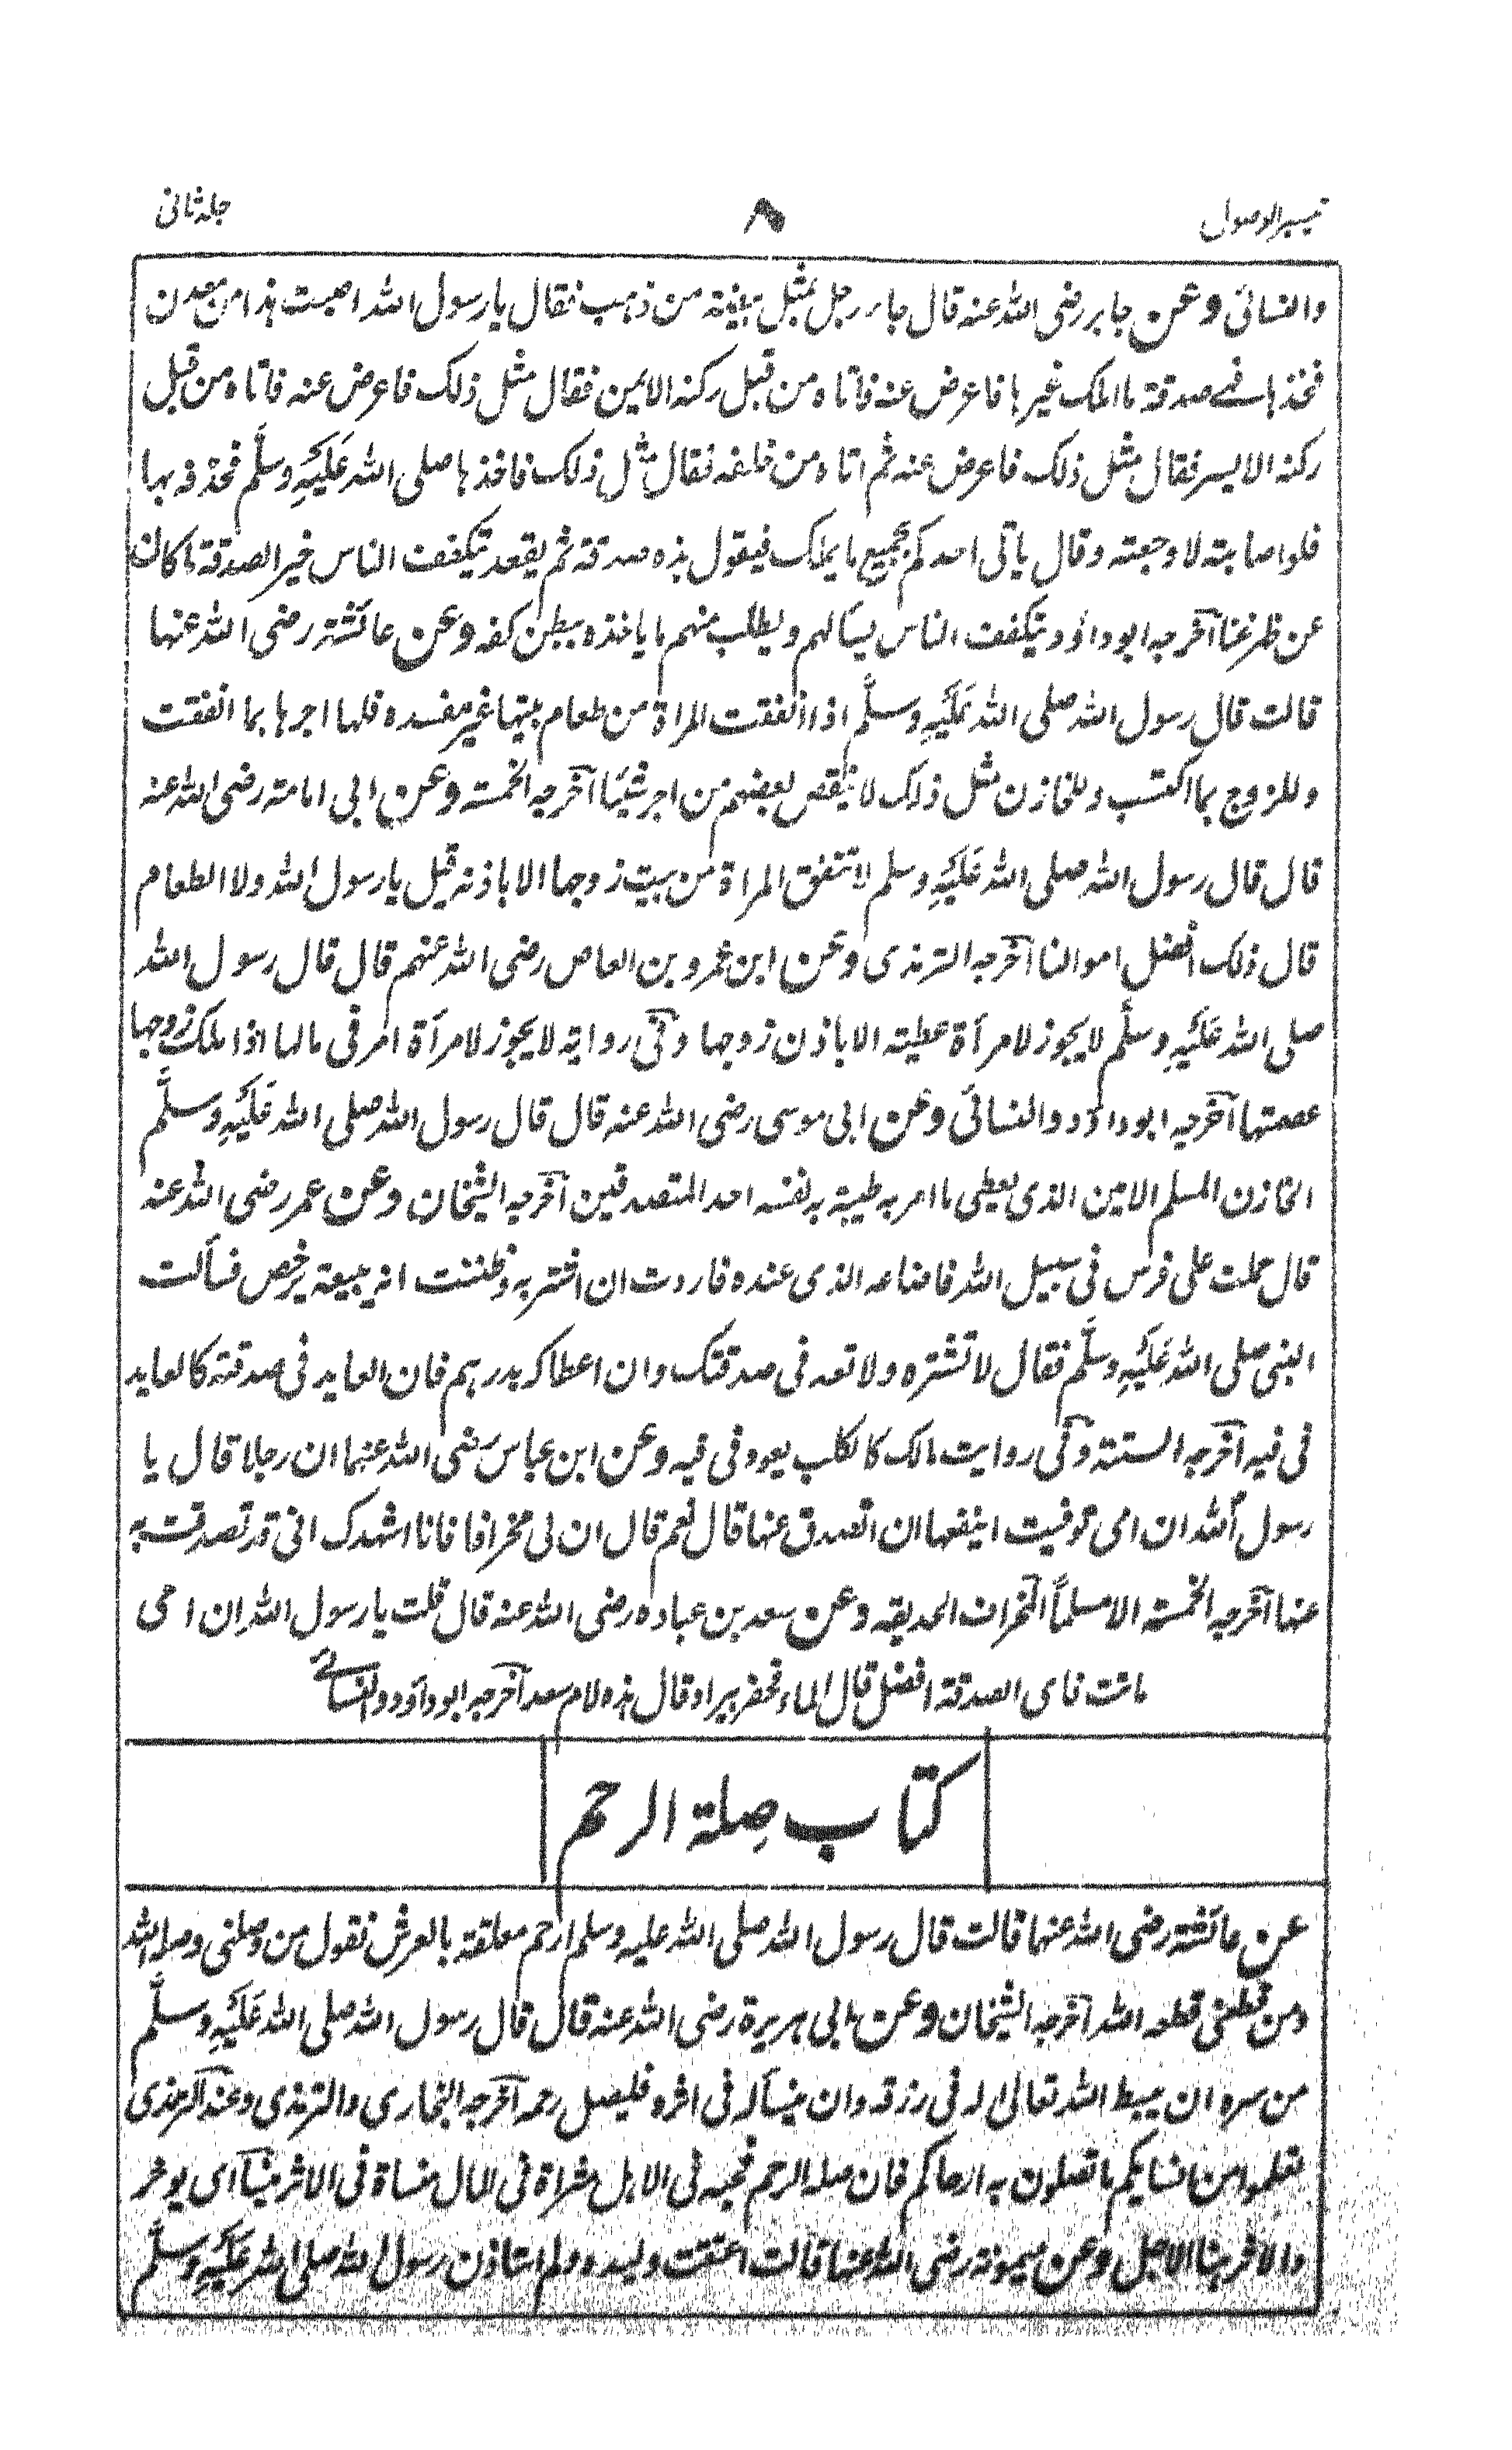 تیسیر الوصول ۸ جلد ثانی
والنسائی وعن جابر رضی الله عنه قال جاء رجل بمثل بیضة من ذهب فقال یارسول الله اصبت هذا من معدن
فخذها فے صدقة ما املک غیرها فاعرض عنه فاتاه من قبل رکنه الایمن فقال مثل ذلک فاعرض عنه فاتاه من قبل
رکنه الایسر فقال مثل ذلک فاعرض عنه ثم اتاه من خلفه فقال مثل ذلک فاخذها صلی الله عَلَیْهِ وسلَّم فحذفه بها
فلو اصابته لاوجعته وقال یاتی احدکم بجمیع ما یملک فیقول هذه صدقة ثم یقعد یتکفف الناس خیر الصدقة ما کان
عن ظهر غنا آخرجه ابوداؤد یتکفف الناس یسالهم ویطلب منهم ما یاخذه ببطن کفه وعن عائشة رضی الله عنها
قالت قال رسول الله صلی الله عَلَیْهِ وسلَّم اذا انفقت المراة من طعام بیتها غیر مفسدة فلها اجرها بما انفقت
وللزوج بما اکتسب وللخازن مثل ذلک لا ینقص بعضهم من اجر شیئا آخرجه الخمسة وعن ابی امامة رضی الله عنه
قال قال رسول الله صلی الله عَلَیْهِ وسلم لا تنفق المراة من بیت زوجها الا باذنه قیل یارسول الله ولا الطعام
قال ذلک افضل اموالنا آخرجه الترمذی وعن ابن عمرو بن العاص رضی الله عنهم قال قال رسول الله
صلی الله عَلَیْهِ وسلَّم لا یجوز لامرأة عطیة الا باذن زوجها وفی روایة لا یجوز لامرأة امر فی مالها اذا ملک زوجها
عصمتها آخرجه ابوداؤد والنسائی وعن ابی موسی رضی الله عنه قال قال رسول الله صلی الله عَلَیْهِ وسلَّم
الخازن المسلم الامین الذی یعطی ما امر به طیبة به نفسه احد المتصدقین آخرجه الشیخان وعن عمر رضی الله عنه
قال حملت علی فرس فی سبیل الله فاضاعه الذی عنده فاردت ان اشتریه وظننت انه یبیعه برخص فسألت
النبی صلی الله عَلَیْهِ وسلَّم فقال لا تشتره ولا تعد فی صدقتک وان اعطاکه بدرهم فان العاید فی صدقته کالعاید
فی قیه آخرجه الستة وفی روایت مالک کالکلب یعود فی قیه وعن ابن عباس رضی الله عنهما ان رجلا قال یا
رسول الله ان امی توفیت اینفعها ان اتصدق عنها قال نعم قال ان لی مخرافا فانا اشهدک انی قد تصدقت به
عنها آخرجه الخمسة الا مسلماً المخراف الحدیقه وعن سعد بن عبادة رضی الله عنه قال قلت یارسول الله ان امی
ماتت فای الصدقة افضل قال الماء فحفر بیرا وقال هذه لام سعد آخرجه ابوداؤد والنسائے
کتاب صِلة الرحم
عن عائشة رضی الله عنها قالت قال رسول الله صلی الله علیه وسلم الرحم معلقة بالعرش تقول من وصلنی وصله الله
ومن قطعنی قطعه الله آخرجه الشیخان وعن ابی هریرة رضی الله عنه قال قال رسول الله صلی الله عَلَیْهِ وسلَّم
من سره ان یبسط الله تعالی له فی رزقه وان ینسأ له فی اثره فلیصل رحمه آخرجه البخاری والترمذی وعند الترمذی
تعلموا من انسابکم ما تصلون به ارحامکم فان صلة الرحم محبة فی الاهل مثراة فی المال منساة فی الاثر ینسأ ای یوخر
والاثر هنا الاجل وعن میمونة رضی الله عنها قالت اعتقت ولیدة ولم استاذن رسول الله صلی الله عَلَیْهِ وسلَّم